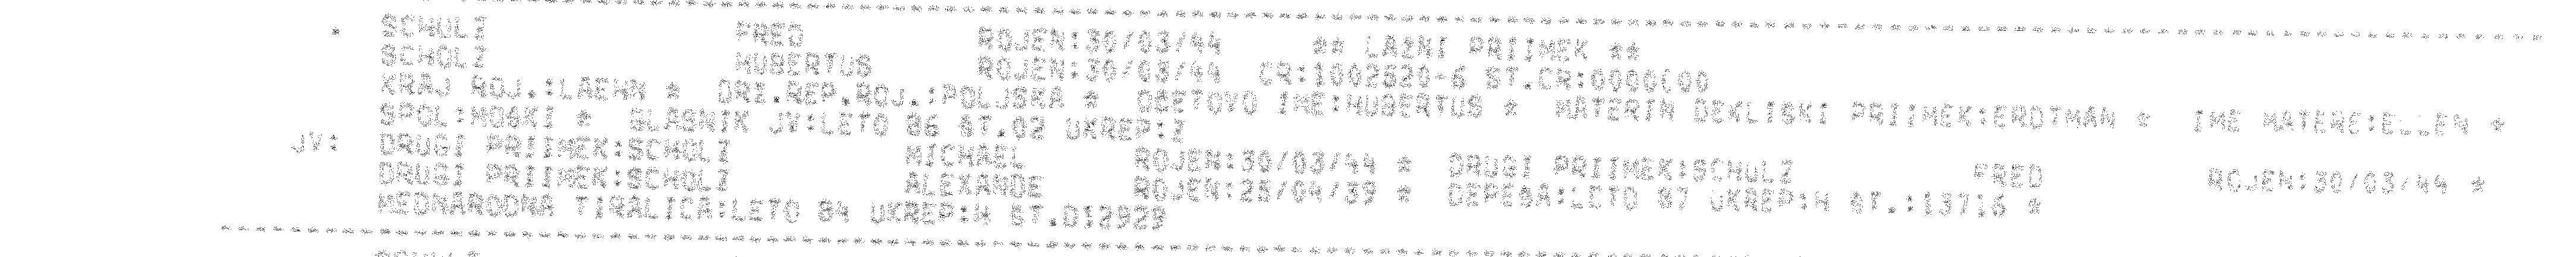 SCHULZ FRED ROJEN:30/03/44 ** LAZNI PRIIMEK **
SCHOLZ HUBERTUS ROJEN:30/03/44 CR:1002620-6 ST.CR:0000000
KRAJ ROJ.:LAEHN * ORI.REP.ROJ.:POLJSKA * OCETOVO IME:HUBERTUS * MATERIN DEKLISKI PRIIMEK:ERDTMAN * IME MATERE:ELLEN *
SPOL:MOSKI * GLASNIK JV:LETO 86 ST.02 UKREP:Z
JV: DRUGI PRIIMEK:SCHOLZ MICHAEL ROJEN:30/03/44 * DRUGI PRIIMEK:SCHULZ FRED ROJEN:30/03/44 *
DRUGI PRIIMEK:SCHOLZ ALEXANDE ROJEN:25/04/39 * DEPESA:LETO 87 UKREP:H ST.:13716 *
MEDNARODNA TIRALICA:LETO 84 UKREP:H ST.D12929